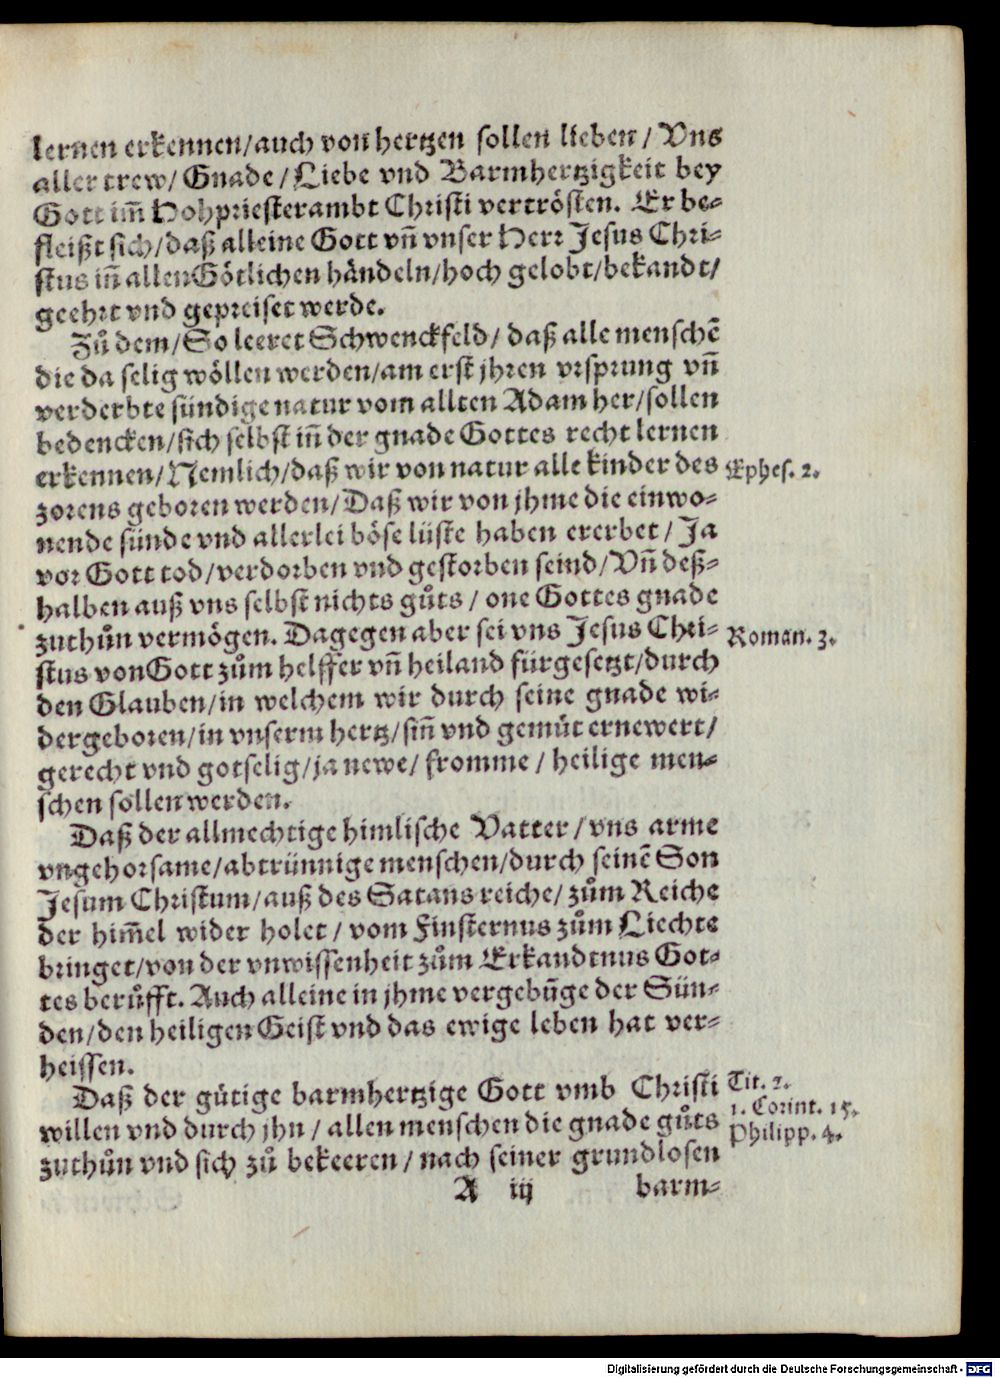 lernen erkennen/auch von hertzen sollen lieben/ Vns
aller trew/ Gnade/ Liebe vnd Barmhertzigkeit bey
Gott im̃ Hohpriesterambt Christi vertrösten. Er be-
fleißt sich/daß alleine Gott vñ vnser Herr Jesus Chri-
stus iñ allen Götlichen händeln/hoch gelobt/bekandt/
geehrt vnd gepreiset werde.
Zů dem/ So leeret Schwenckfeld/ daß alle menschẽ
die da selig wöllen werden/am erst jhren vrsprung vñ
verderbte sündige natur vom allten Adam her/sollen
bedencken/sich selbst iñ der gnade Gottes recht lernen
erkennen/Nemlich/daß wir von natur alle kinder des Ephes. 2.
zorens geboren werden/ Daß wir von jhme die einwo-
nende sünde vnd allerlei böse lüste haben ererbet/ Ja
vor Gott tod/verdorben vnd gestorben seind/Vñ deß-
halben auß vns selbst nichts gůts/ one Gottes gnade
zuthůn vermögen. Dagegen aber sei vns Jesus Chri- Roman. 3.
stus von Gott zům helffer vñ heiland fürgesetzt/durch
den Glauben/in welchem wir durch seine gnade wi-
dergeboren/in vnserm hertz/siñ vnd gemüt ernewert/
gerecht vnd gotselig/ja newe/ fromme/ heilige men-
schen sollen werden.
Daß der allmechtige himlische Vatter/ vns arme
vngehorsame/abtrünnige menschen/durch seinẽ Son
Jesum Christum/auß des Satans reiche/ zům Reiche
der him̃el wider holet/ vom Finsternus zům Liechte
bringet/von der vnwissenheit zům Erkandtnus Got-
tes berůfft. Auch alleine in jhme vergebũge der Sün-
den/den heiligen Geist vnd das ewige leben hat ver-
heissen.
Daß der gütige barmhertzige Gott vmb Christi Tit. 2.
1. Corint. 15.
willen vnd durch jhn/ allen menschen die gnade gůts Philipp. 4.
zuthůn vnd sich zů bekeeren/ nach seiner grundlosen
A iij barm-
Digitalisierung gefördert durch die Deutsche Forschungsgemeinschaft - DFG